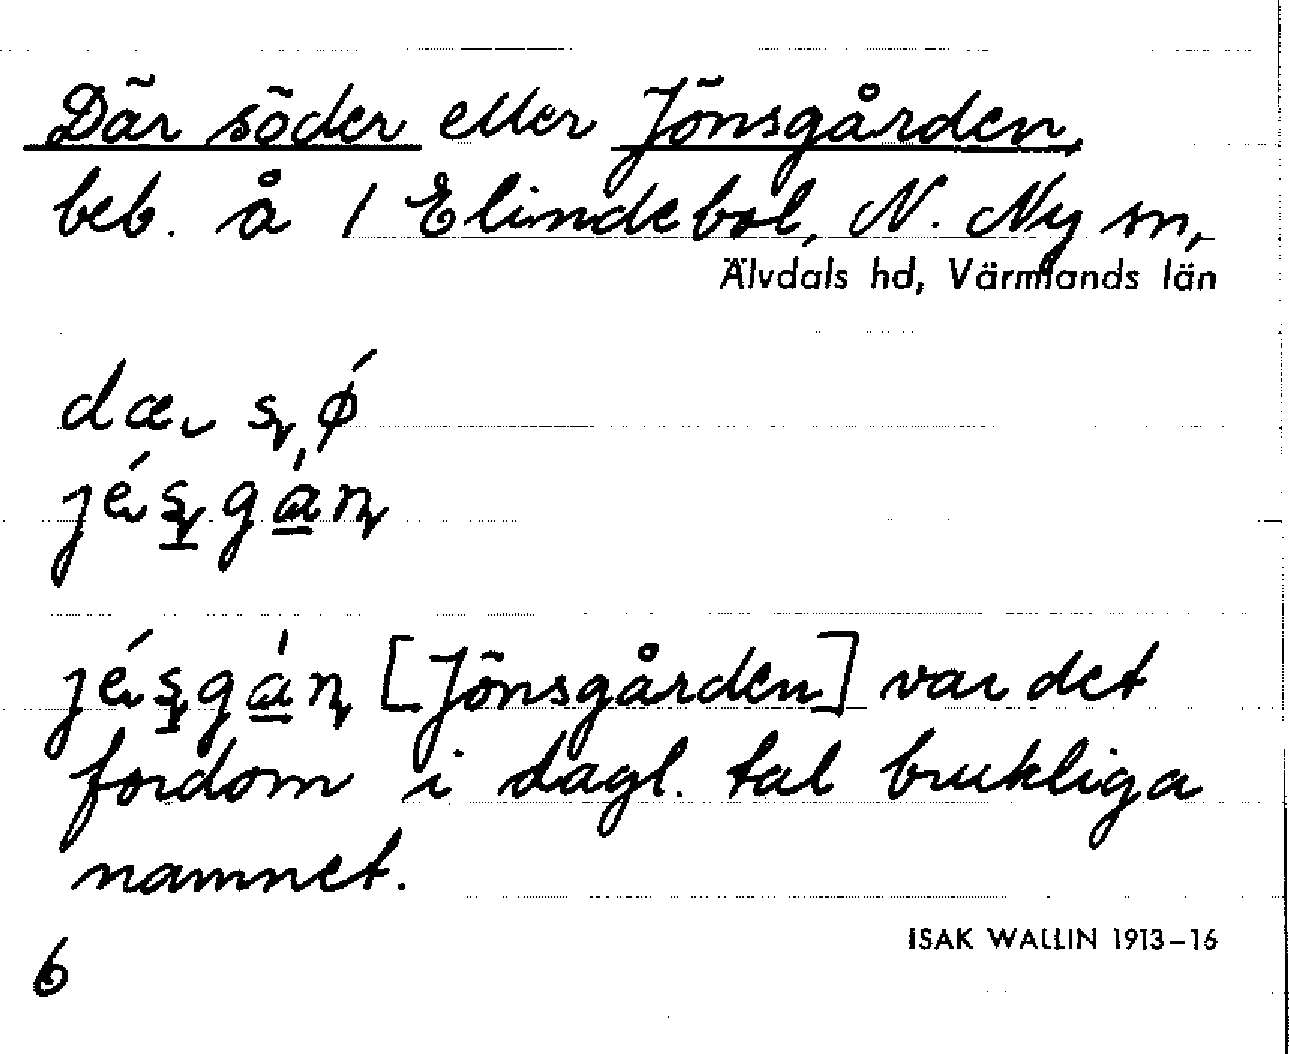 Där söder eller Jönsgården,
beb. å 1 Elindebol, N. Ny sn,
Älvdals hd, Värmlands län
dæ sǿ
jésgàn
jésgàn [Jönsgården] var det
fordom i dagl. tal brukliga
namnet.
ISAK WALLIN 1913–16
6